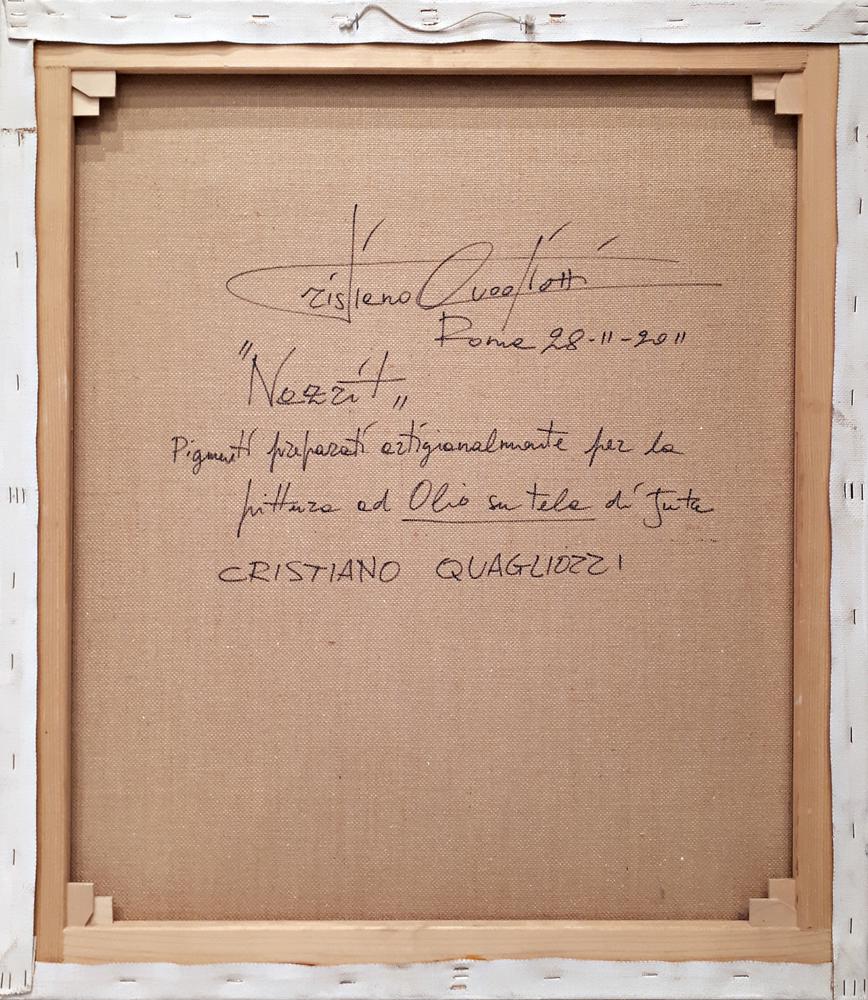 Cristiano Quagliozzi
Roma 28-11-2011
"Nazzit"
Pigmenti preparati artigianalmente per la
pittura ad Olio su tela di Juta
CRISTIANO QUAGLIOZZI